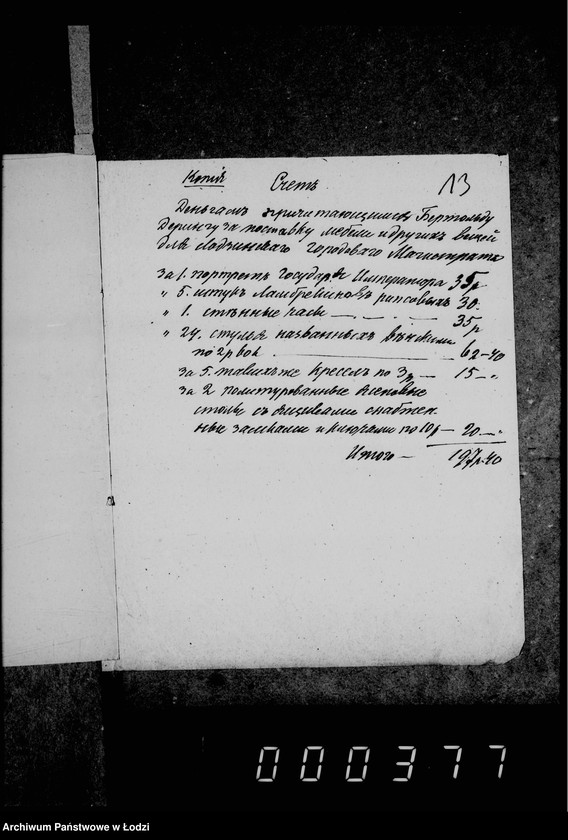 Копія
Счетъ
13
Деньгамъ причитающимся Бертольду
Дерингу за поставку мебели и другихъ вещей
для Лодзинскаго Городоваго Магистрата
за 1. портретъ Государя Императора 35р
" 5. штукъ Ламбрекиновъ рипсовыхъ 30.
" 1. стѣнные часы — . — . — . 35р
" 24. стулья названныхъ вѣнскими
по 2р 60к — 62-40
за 5. такихъ же креселъ по 3р — 15 — "
за 2 политурованные ясеновые
столы съ ящиками снабжен
ные замками и ключами по 10р — 20 — "
Итого — 197р.40
000377
Archiwum Państwowe w Łodzi